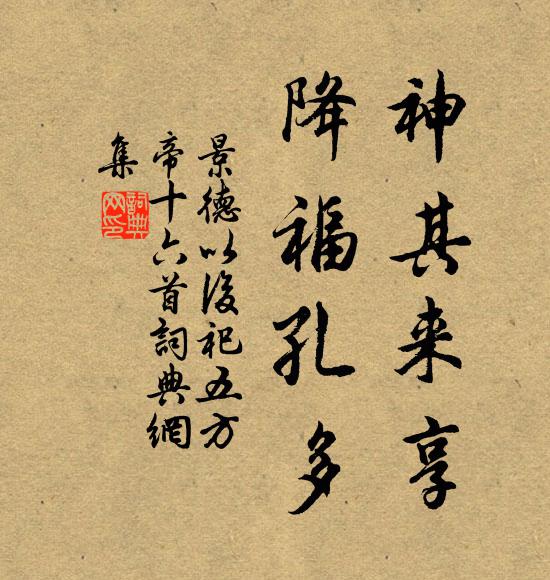 神其来享
降福孔多
景德以後祀五方
帝十六首詞典網
集
詞典
网印